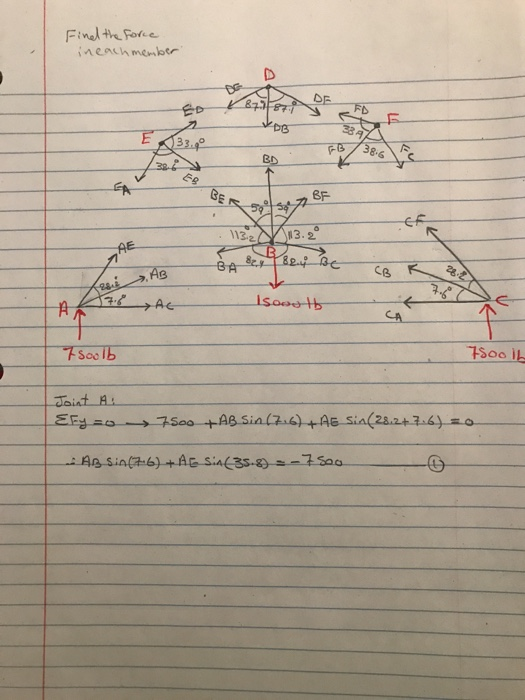 Find the Force
in each member
D
DE
DF
87.1° 87.1°
DB
ED
E
33.9°
38.6°
EA
EB
FD
F
33.9
38.6
FB
FC
BD
BE
BF
59° 59°
113.2° 113.2°
B
BA
82.4 82.4°
BC
15000 lb
AE
AB
28.2
7.6°
A
AC
7500 lb
CF
CB
28.2
7.6°
C
CA
7500 lb
Joint A:
ΣFy = 0 → 7500 + AB Sin (7.6) + AE Sin(28.2+7.6) = 0
∴ AB Sin(7.6) + AE Sin(35.8) = -7500 ①